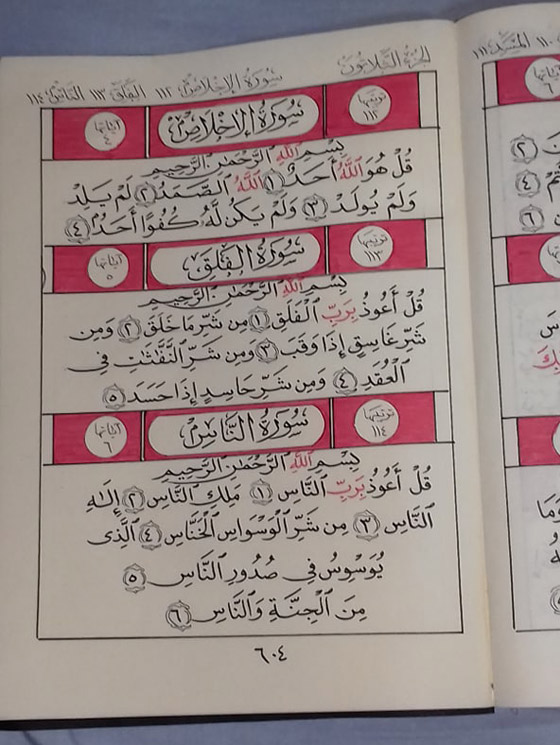 الجزء الثلاثون سورة الإخلاص ١١٢ الفلق ١١٣ الناس ١١٤
ترتيبها ١١٢ سُورَةُ الإِخْلَاصِ آياتها ٤
بِسْمِ اللَّهِ الرَّحْمَٰنِ الرَّحِيمِ
قُلْ هُوَ اللَّهُ أَحَدٌ ١ اللَّهُ الصَّمَدُ ٢ لَمْ يَلِدْ
وَلَمْ يُولَدْ ٣ وَلَمْ يَكُن لَّهُ كُفُوًا أَحَدٌ ٤
ترتيبها ١١٣ سُورَةُ الْفَلَقِ آياتها ٥
بِسْمِ اللَّهِ الرَّحْمَٰنِ الرَّحِيمِ
قُلْ أَعُوذُ بِرَبِّ الْفَلَقِ ١ مِن شَرِّ مَا خَلَقَ ٢ وَمِن
شَرِّ غَاسِقٍ إِذَا وَقَبَ ٣ وَمِن شَرِّ النَّفَّٰثَٰتِ فِي
الْعُقَدِ ٤ وَمِن شَرِّ حَاسِدٍ إِذَا حَسَدَ ٥
ترتيبها ١١٤ سُورَةُ النَّاسِ آياتها ٦
بِسْمِ اللَّهِ الرَّحْمَٰنِ الرَّحِيمِ
قُلْ أَعُوذُ بِرَبِّ النَّاسِ ١ مَلِكِ النَّاسِ ٢ إِلَٰهِ
النَّاسِ ٣ مِن شَرِّ الْوَسْوَاسِ الْخَنَّاسِ ٤ الَّذِي
يُوَسْوِسُ فِي صُدُورِ النَّاسِ ٥
مِنَ الْجِنَّةِ وَالنَّاسِ ٦
٦٠٤
المسد ١١١